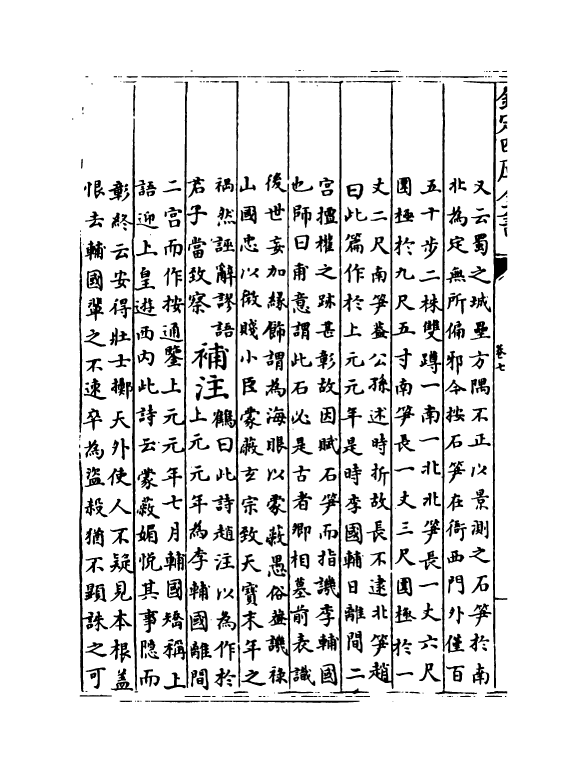 欽定四庫全書
卷七
又云蜀之城壘方隅不正以景測之石笋於南
北為定無所偏邪今按石笋在衙西門外僅百
五十步二株雙蹲一南一北北笋長一丈六尺
圍極於九尺五寸南笋長一丈三尺圍極於一
丈二尺南笋蓋公孫述時折故長不逮北笋趙
曰此篇作於上元元年是時李國輔日離間二
宫擅權之跡甚彰故因賦石笋而指譏李輔國
也師曰甫意謂此石必是古者卿相墓前表識
後世妄加縁飾謂為海眼以蒙蔽愚俗並譏祿
山國忠以微賤小臣蒙蔽玄宗致天寶末年之
禍然誣解謬語
君子當致察
補注
鶴曰此詩趙注以為作於
上元元年為李輔國離間
二宫而作按通鑒上元元年七月輔國矯稱上
語迎上皇遊西内此詩云蒙蔽媚悦其事隠而
彰終云安得壯士擲天外使人不疑見本根蓋
恨去輔國輩之不速卒為盜殺猶不顯誅之可